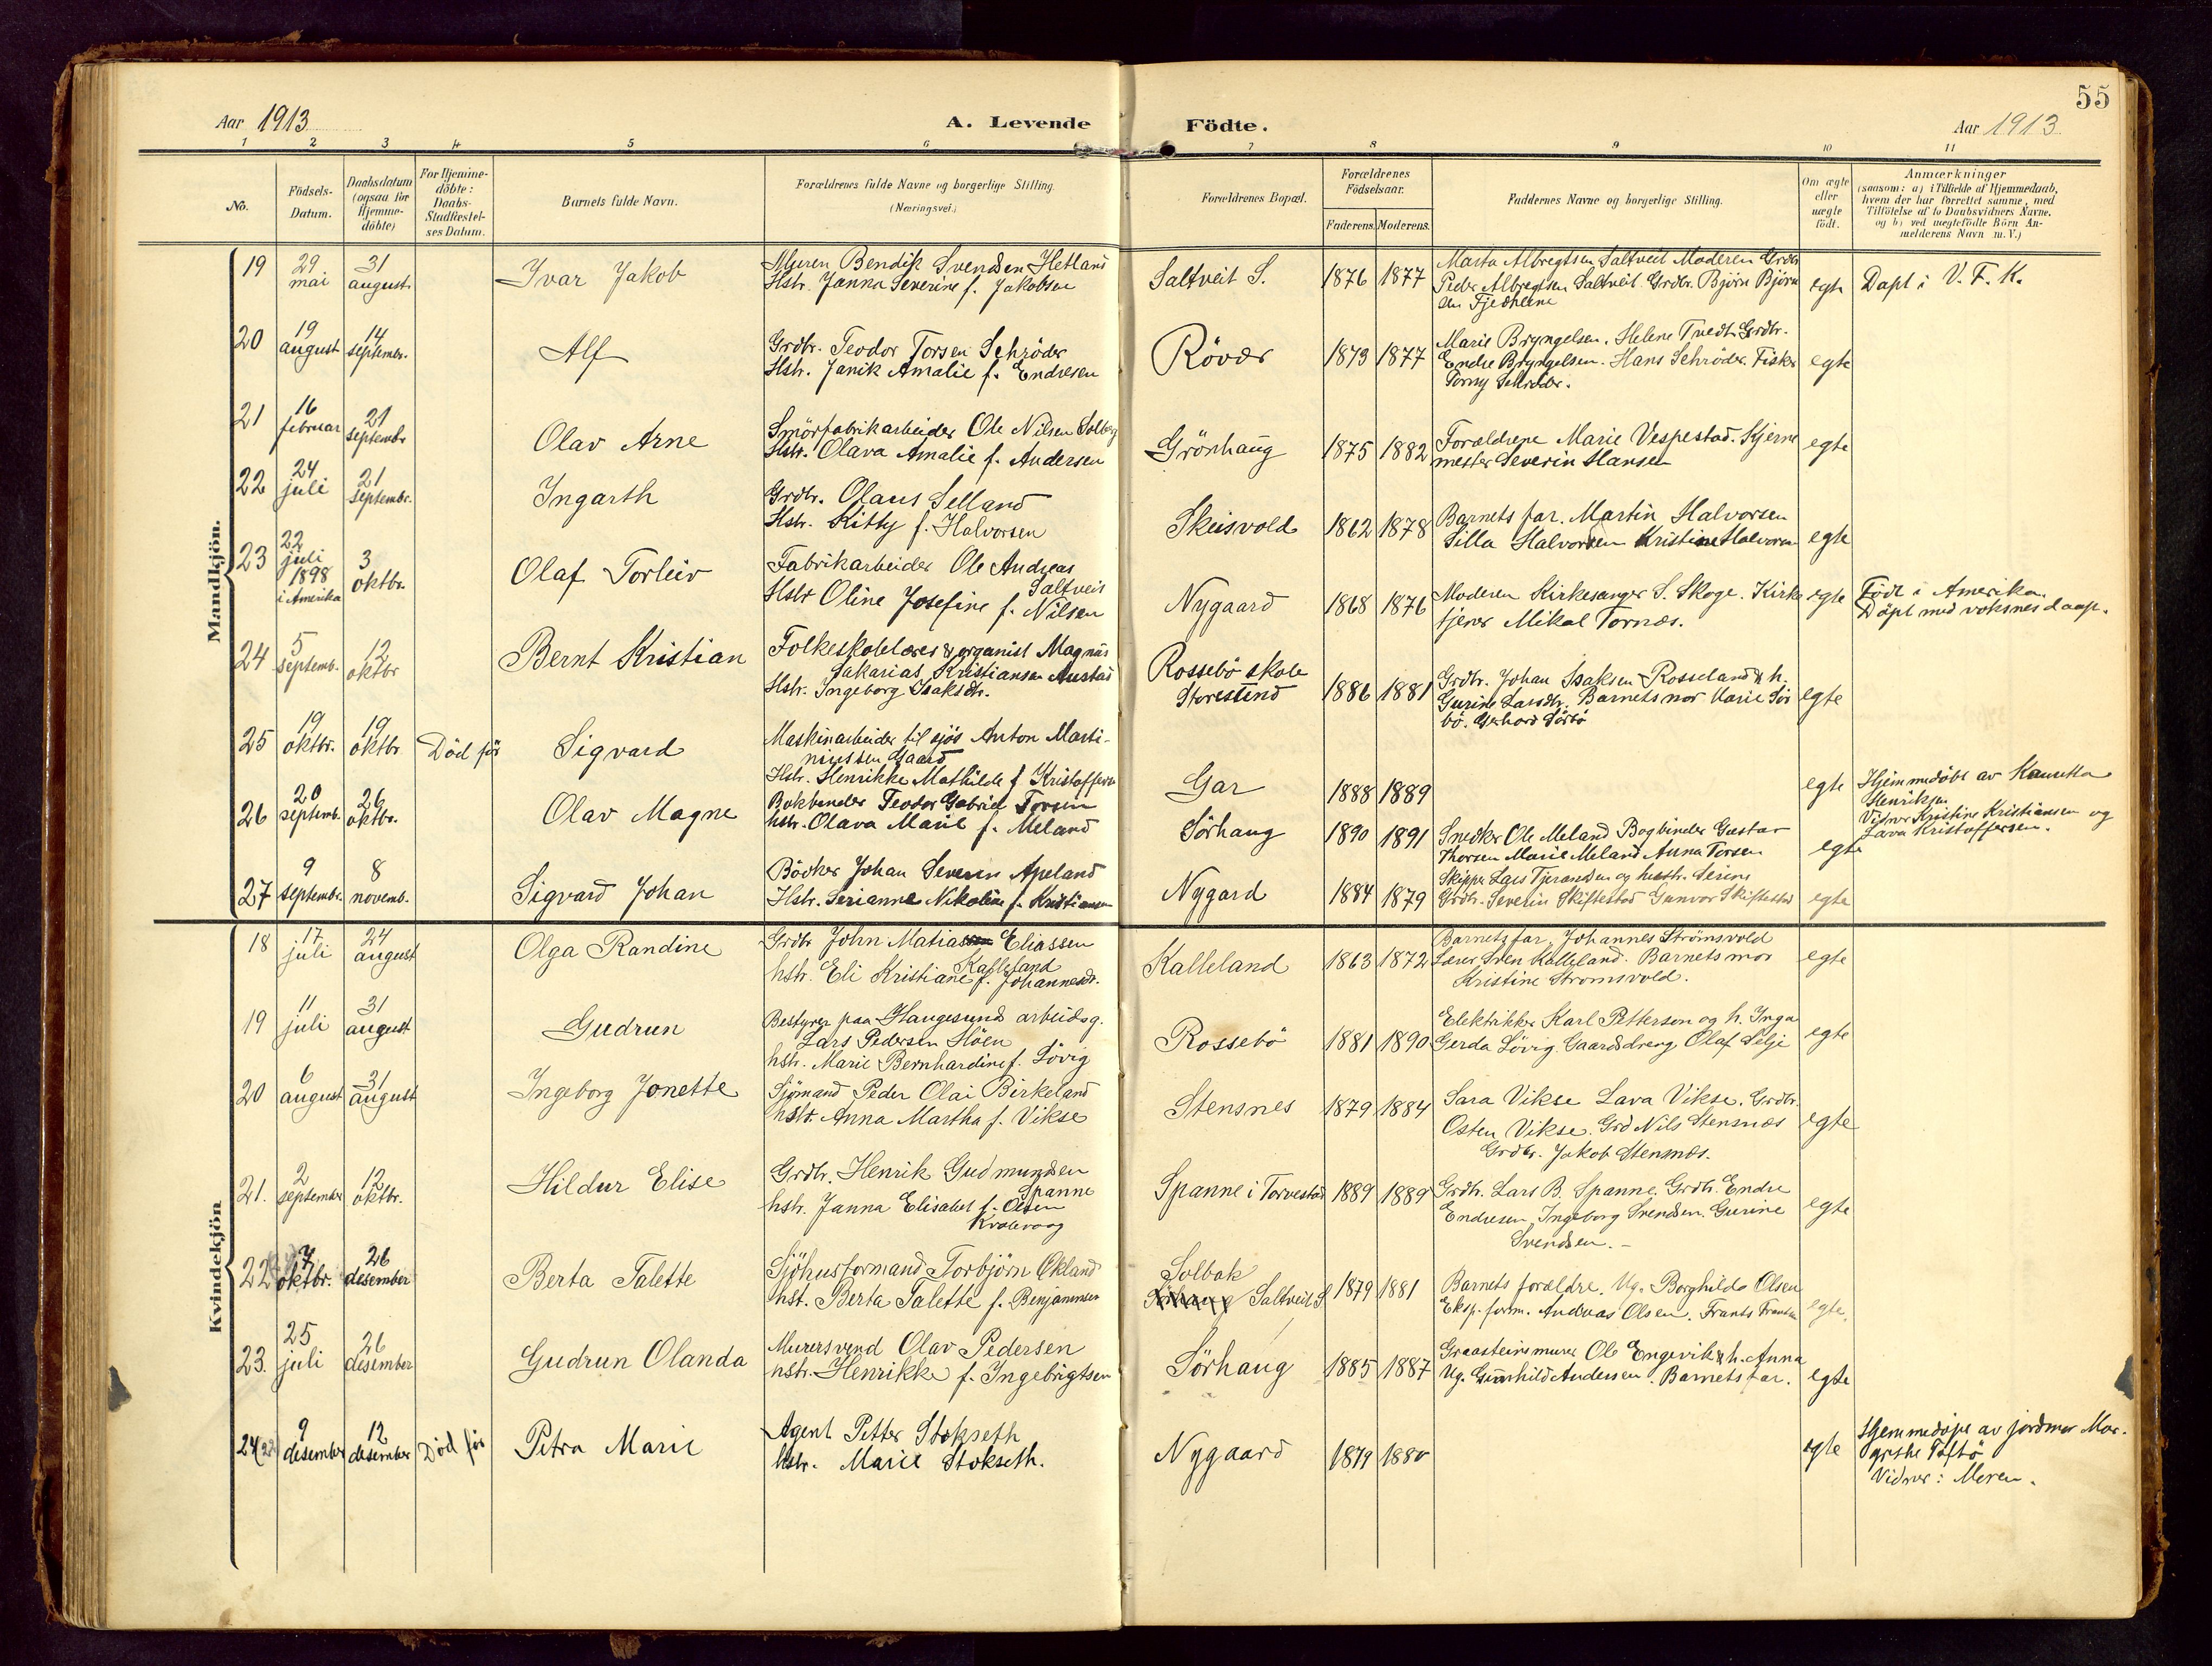 55
Aar 1913
A. Levende Födte.
Aar 1913
1 2 3 4 5 6 7 8 9 10 11
No.
Födsels-
Datum.
Daabsdatum
(ogsaa for
Hjemme-
döbte)
For Hjemme-
döbte:
Daabs-
Stadfæstel-
ses Datum.
Barnets fulde Navn.
Forældrenes fulde Navne og borgerlige Stilling.
(Næringsvei.)
Forældrenes Bopæl.
Forældrenes
Födselsaar.
Faderens. Moderens.
Faddernes Navne og borgerlige Stilling.
Om ægte
eller
uægte
födt.
Anmærkninger
(saasom: a) i Tilfælde af Hjemmedaab,
hvem der har forrettet samme, med
Tilföielse af to Daabsvidners Navne.
og b) ved uægtefödte Börn An-
melderens Navn m. V.)
Mandkjön.
19
29
mai
31
august
Ivar Jakob
Muren Bendik Svendsen Hetland
Hstr. Janna Severine f. Jakobsen
Saltveit S.
1876 1877
Marta Albregtsen Saltveit Moderen Grdbr
Peder Albregtsen Saltveit. Grdbr. Björn Björn
sen Fjedheine
egte
Døpt i V. F. K.
20
19
august
14
september.
Alf
Grdbr. Teodor Torsen Schröder
Hstr. Janik Amalie f. Endresen
Rövær
1873 1877
Marie Bryngelsen. Helene Tvedt. Grdbr.
Endre Bryngelsen. Hans Schröder. Fisker
Torny Schröder.
egte
21
16
februar
21
septembr
Olav Arne
Smörfabrikarbeider Ole Nilsen Solberg
Hstr. Olava Amalie f. Andersen
Grönhaug
1875 1882
Forældrene Marie Vespestad. Kjerne
mester Severin Hansen
egte
22
24
juli
21
septembr.
Ingarth
Grdbr. Olaus Selland
Hstr. Kitty f. Halvorsen
Skeisvold
1862 1878
Barnets far. Martin Halvorsen
Silla Halvorsen Kristine Halvorsen
egte
23
22
juli
1898
i Amerika
3
oktbr.
Olaf Torleiv
Fabrikarbeider Ole Andreas
Saltveit
Hstr Oline Josefine f. Nilsen
Nygaard
1868 1876
Moderen Kirkesanger S. Skoge. Kirke
tjener Mikal Tornæs.
egte
Født i Amerika.
Döpt med voksnes daap.
24
5
septemb.
12
oktbr
Bernt Kristian
Folkeskolelærer & organist Magnus
Sakarias Kristiansen Austad
Hstr. Ingeborg Isaksdtr.
Rossebö skole
Storesund
1886 1881
Grdbr. Johan Isaksen Rosseland & h.
Gurine Larsdtr. Barnets mor Marie Sör
bö. Gerhard Sörbö
egte
25
19
oktbr.
19
oktbr.
Död før
Sigvard
Maskinarbeider til sjös Anton Marti-
niussen Gaard
Hstr. Henrikke Mathilde f Kristoffersen
Gar
1888 1889
egte
Hjemmedöbt av
Henriksen
Vidner Kristine Kristiansen og
Lava Kristoffersen.
26
20
septemb.
26
oktbr.
Olav Magne
Bokbinder Teodor Gabriel Torsen
hstr. Olava Marie f. Meland
Sörhaug
1890 1891
Snedker Ole Meland Bogbinder Gustav
Thorsen Marie Meland Anna Torsen
egte
27
9
septembr.
8
novemb.
Sigvard Johan
Bödker Johan Severin Apeland
Hstr. Serianne Nikoline f. Kristiansen
Nygard
1884 1879
Skipper Lars Tjerandsen og hustr. Serine
Grdbr. Severin Skiftestad Gunvor Skiftestad
egte
Kvindekjön
18
17
juli
24
august
Olga Randine
Grdbr John Matiassen Eliassen
Kalleland
hstr. Eli Kristiane f. Johannesdr.
Kalleland
1863 1872
Barnets far, Johannes Strömsvold
Lærer Sven Kalleland. Barnets mor
Kristine Stromsvold.
egte
19
11
juli
31
august
Gudrun
Bestyrer paa Haugesunds arbeidsg.
Lars Pedersen Höen
hstr. Marie Bernhardine f. Lövig
Rossebö
1881 1890
Elektriker Karl Petterson og h. Inga
Gerda Lövig. Gaardsdreng Olaf Silji
egte
20
6
august
31
august
Ingeborg Jonette
Sjömand Peder Olai Birkeland
hstr. Anna Martha f. Vikse
Stensnes
1879 1884
Sara Vikse Lava Vikse. Grdbr.
Osten Vikse. Grd Nils Stensnæs
Grdbr. Jakob Stensnæs.
egte
21.
2
september
12
oktbr.
Hildur Elise
Grdbr. Henrik Gudmundsen
Spanne
hstr. Janna Elisabet f. Olsen
Kvalevaag
Spanne i Torvestad
1889 1889
Grdbr. Lars B. Spanne. Grdbr. Endre
Endresen, Ingeborg Svendsen. Gurine
Svendsen.
egte
22
7
oktbr.
26
desember
Berta Talette
Sjöhusformand Torbjörn Økland
hst. Berta Talette f. Benjaminsen
Solbak
Sörhaug Saltveit S
1879 1881
Barnets forældre. Ug. Borghilda Olsen
Eksp. form. Andreas Olsen. Frants Frantsen
egte.
23.
25
juli
26
desember
Gudrun Olanda
Murersvend Olav Pedersen
hstr. Henrikke f. Ingebrigtsen
Sörhaug
1885 1887
Graasteinsmurer Ole Engevik & h. Anna
Ug. Gunhild Andersen. Barnets far.
egte
24
9
desember
12
desember
Död før
Petra Marie
Agent Petter Stokseth
Hstr. Marie Stokseth.
Nygaard
1879 1880
egte
Hjemmedöpt av jordmor Mar-
grethe Toftö
Vidner: Moren.